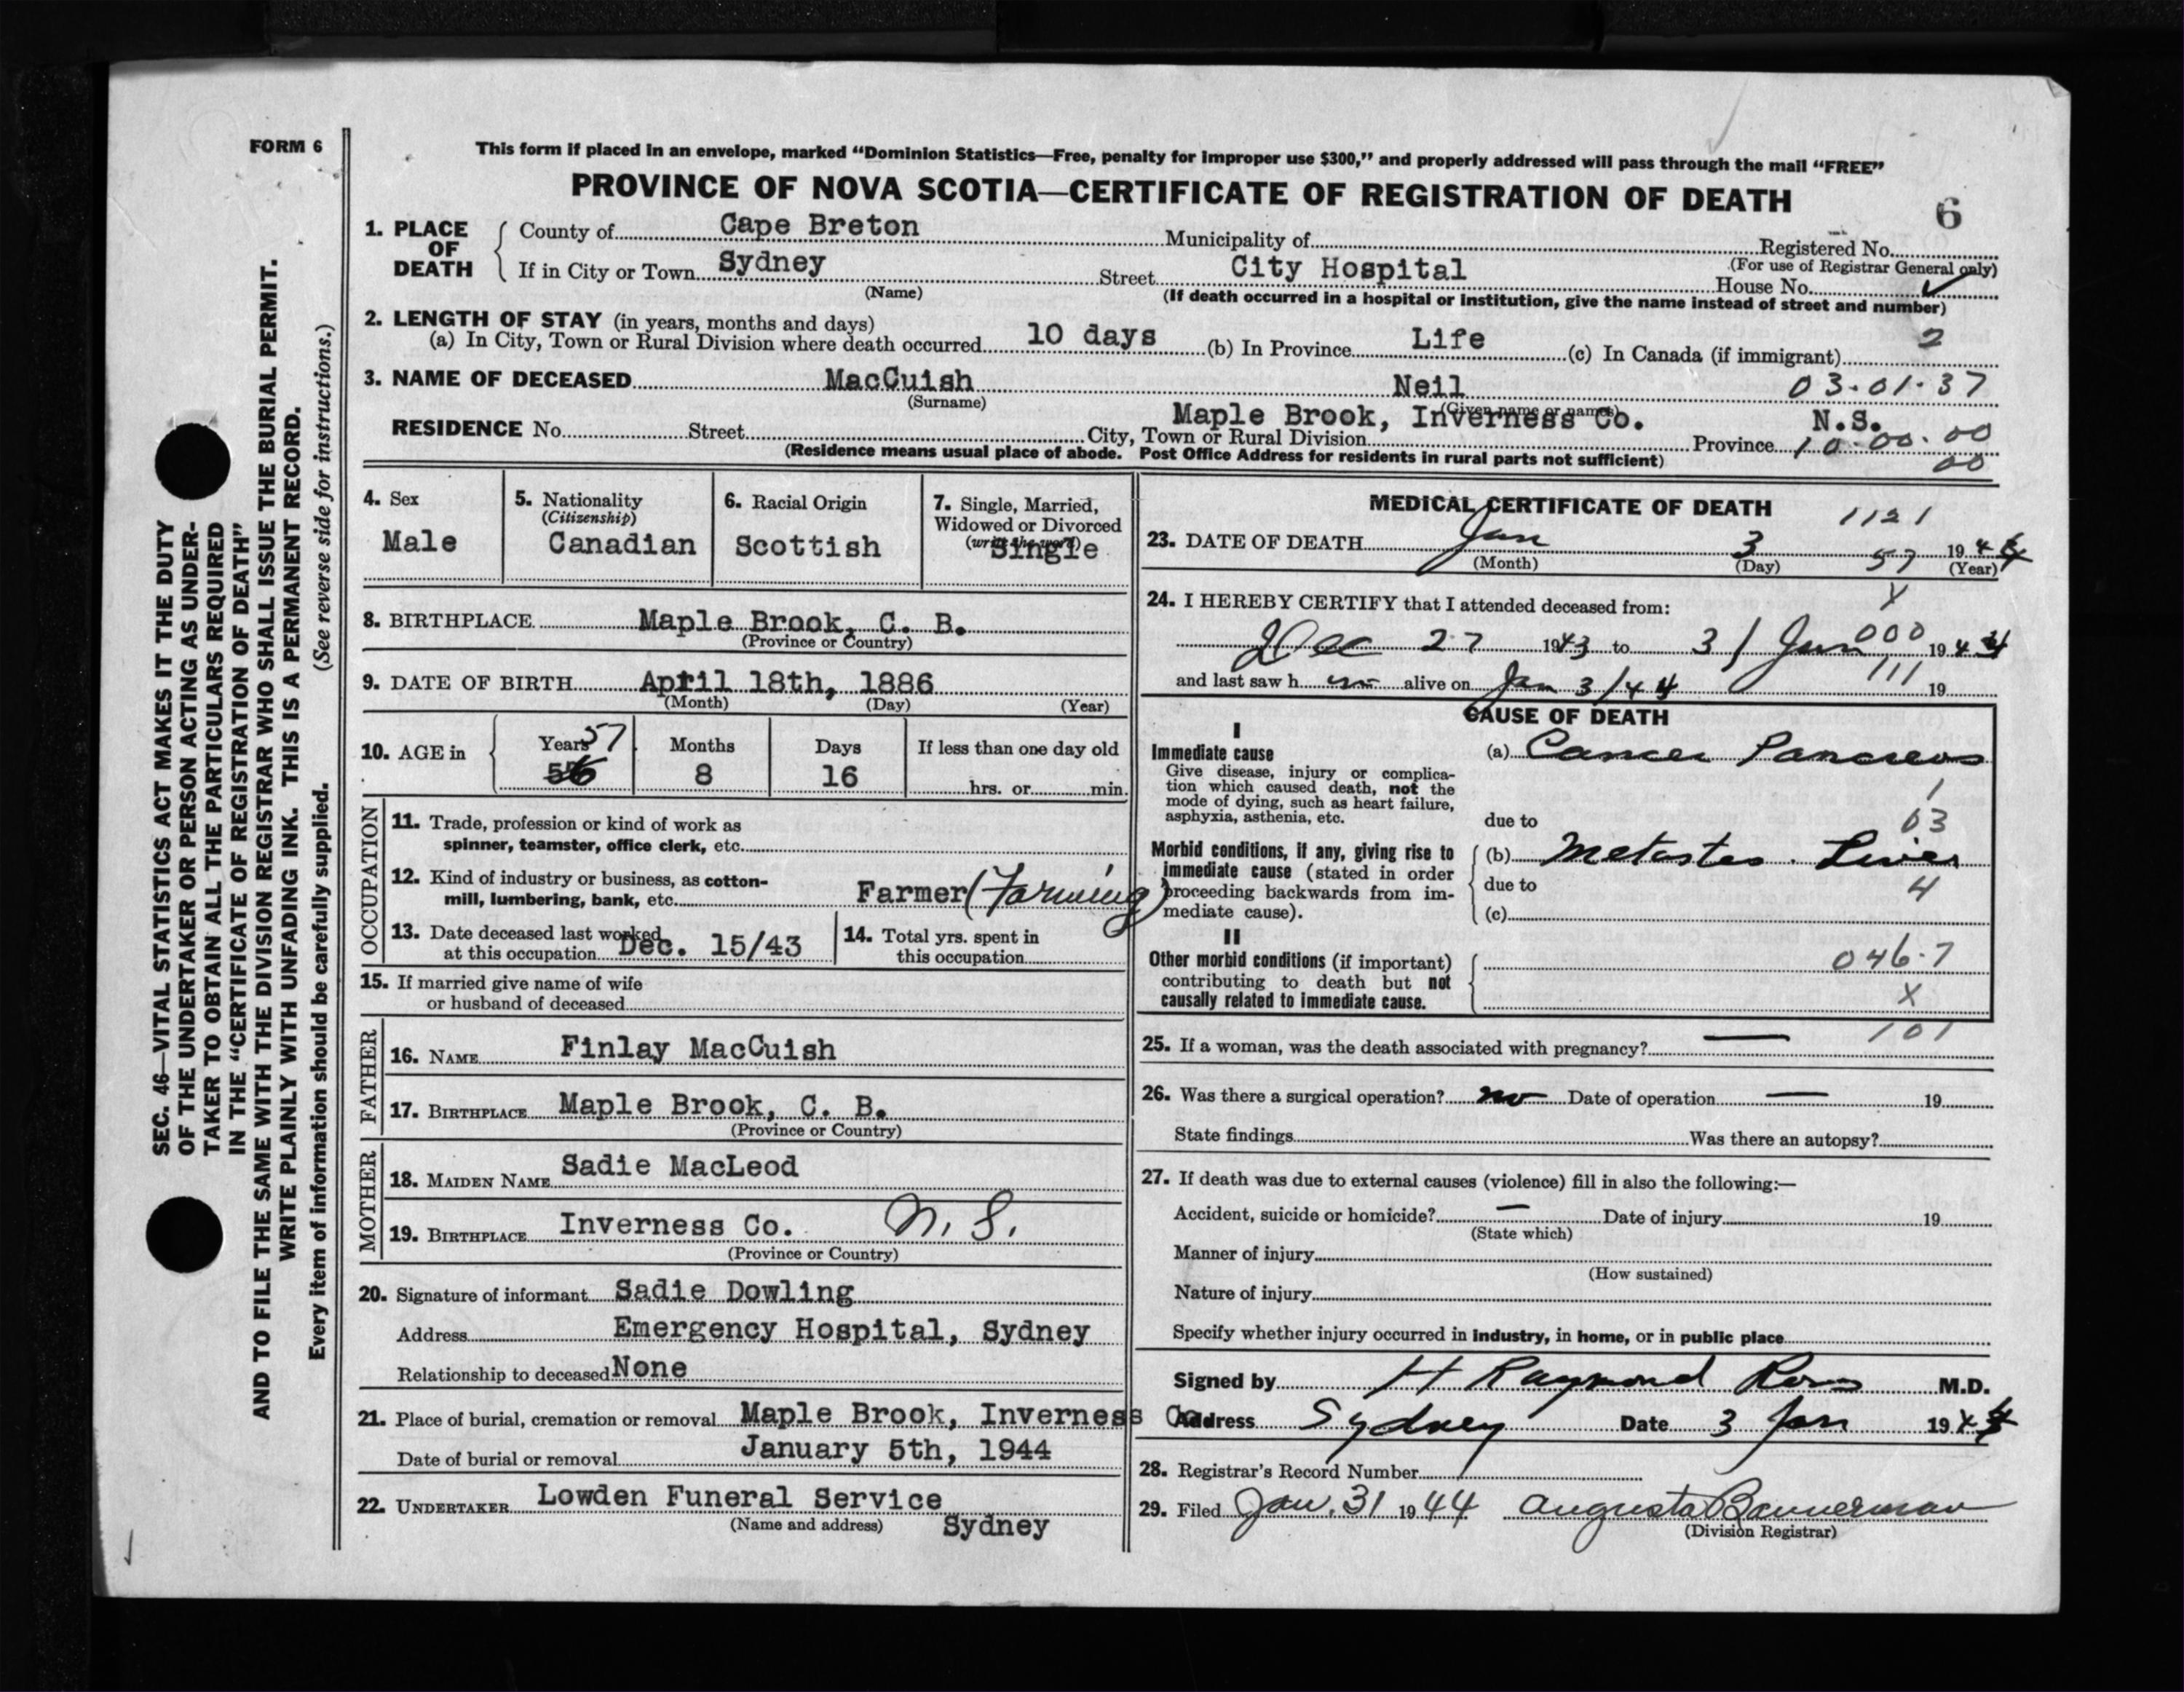 FORM 6
This form if placed in an envelope, marked “Dominion Statistics—Free, penalty for improper use $300,” and properly addressed will pass through the mail “FREE”
PROVINCE OF NOVA SCOTIA—CERTIFICATE OF REGISTRATION OF DEATH
6
1. PLACE OF DEATH { County of Cape Breton Municipality of Registered No.
(For use of Registrar General only)
If in City or Town Sydney Street City Hospital House No. ✓
(Name) (If death occurred in a hospital or institution, give the name instead of street and number)
2. LENGTH OF STAY (in years, months and days)
(a) In City, Town or Rural Division where death occurred 10 days (b) In Province Life (c) In Canada (if immigrant) 2
3. NAME OF DECEASED MacCuish Neil 03-01-37
(Surname) (Given name or names)
RESIDENCE No. Street City, Town or Rural Division Maple Brook, Inverness Co. Province N.S. 10-00-00
00
(Residence means usual place of abode. Post Office Address for residents in rural parts not sufficient)
4. Sex
Male
5. Nationality
(Citizenship)
Canadian
6. Racial Origin
Scottish
7. Single, Married,
Widowed or Divorced
(write the word)
Single
8. BIRTHPLACE Maple Brook, C. B.
(Province or Country)
9. DATE OF BIRTH April 18th, 1886
(Month) (Day) (Year)
10. AGE in { Years 57 56 Months 8 Days 16 If less than one day old
hrs. or min.
OCCUPATION
11. Trade, profession or kind of work as
spinner, teamster, office clerk, etc.
12. Kind of industry or business, as cotton-
mill, lumbering, bank, etc. Farmer (Farming)
13. Date deceased last worked
at this occupation Dec. 15/43
14. Total yrs. spent in
this occupation
15. If married give name of wife
or husband of deceased
FATHER
16. NAME Finlay MacCuish
17. BIRTHPLACE Maple Brook, C. B.
(Province or Country)
MOTHER
18. MAIDEN NAME Sadie MacLeod
19. BIRTHPLACE Inverness Co. N. S.
(Province or Country)
20. Signature of informant Sadie Dowling
Address Emergency Hospital, Sydney
Relationship to deceased None
21. Place of burial, cremation or removal Maple Brook, Inverness Co.
Date of burial or removal January 5th, 1944
22. UNDERTAKER Lowden Funeral Service
(Name and address) Sydney
MEDICAL CERTIFICATE OF DEATH
1121
23. DATE OF DEATH Jan 3 57 1944
(Month) (Day) (Year)
24. I HEREBY CERTIFY that I attended deceased from: X
Dec 27 1943 to 3 / Jan 000 1944
and last saw h im alive on Jan 3/44 111 19
CAUSE OF DEATH
I
Immediate cause
Give disease, injury or complica-
tion which caused death, not the
mode of dying, such as heart failure,
asphyxia, asthenia, etc.
(a) Cancer Pancreas
1
due to 03
Morbid conditions, if any, giving rise to
immediate cause (stated in order
proceeding backwards from im-
mediate cause).
(b) Metastes. Liver
due to 4
(c)
II
Other morbid conditions (if important)
contributing to death but not
causally related to immediate cause.
046-7
X
25. If a woman, was the death associated with pregnancy? — 101
26. Was there a surgical operation? no Date of operation — 19
State findings Was there an autopsy?
27. If death was due to external causes (violence) fill in also the following:—
Accident, suicide or homicide? — Date of injury 19
(State which)
Manner of injury
(How sustained)
Nature of injury
Specify whether injury occurred in industry, in home, or in public place
Signed by H Raymond Ross M.D.
Address Sydney Date 3 Jan 1944
28. Registrar's Record Number
29. Filed Jan. 31 1944 Augusta Bannerman
(Division Registrar)
SEC. 46—VITAL STATISTICS ACT MAKES IT THE DUTY
OF THE UNDERTAKER OR PERSON ACTING AS UNDER-
TAKER TO OBTAIN ALL THE PARTICULARS REQUIRED
IN THE “CERTIFICATE OF REGISTRATION OF DEATH”
AND TO FILE THE SAME WITH THE DIVISION REGISTRAR WHO SHALL ISSUE THE BURIAL PERMIT.
WRITE PLAINLY WITH UNFADING INK. THIS IS A PERMANENT RECORD.
Every item of information should be carefully supplied. (See reverse side for instructions.)